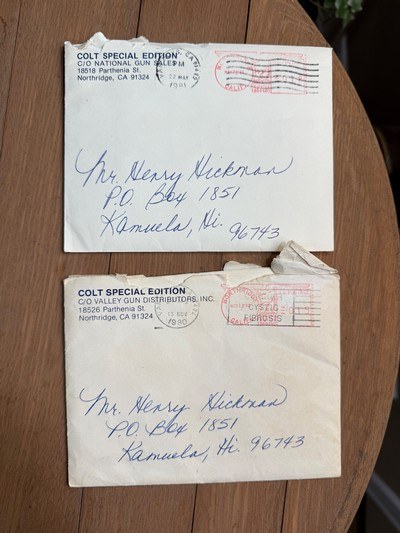 COLT SPECIAL EDITION
C/O NATIONAL GUN SALES
18518 Parthenia St.
Northridge, CA 91324
PM
22 MAY
1981
Mr. Henry Hickman
P.O. Box 1851
Kamuela, Hi. 96743
COLT SPECIAL EDITION
C/O VALLEY GUN DISTRIBUTORS, INC.
18526 Parthenia St.
Northridge, CA 91324
1980
CYSTIC
FIBROSIS
Mr. Henry Hickman
P.O. Box 1851
Kamuela, Hi 96743